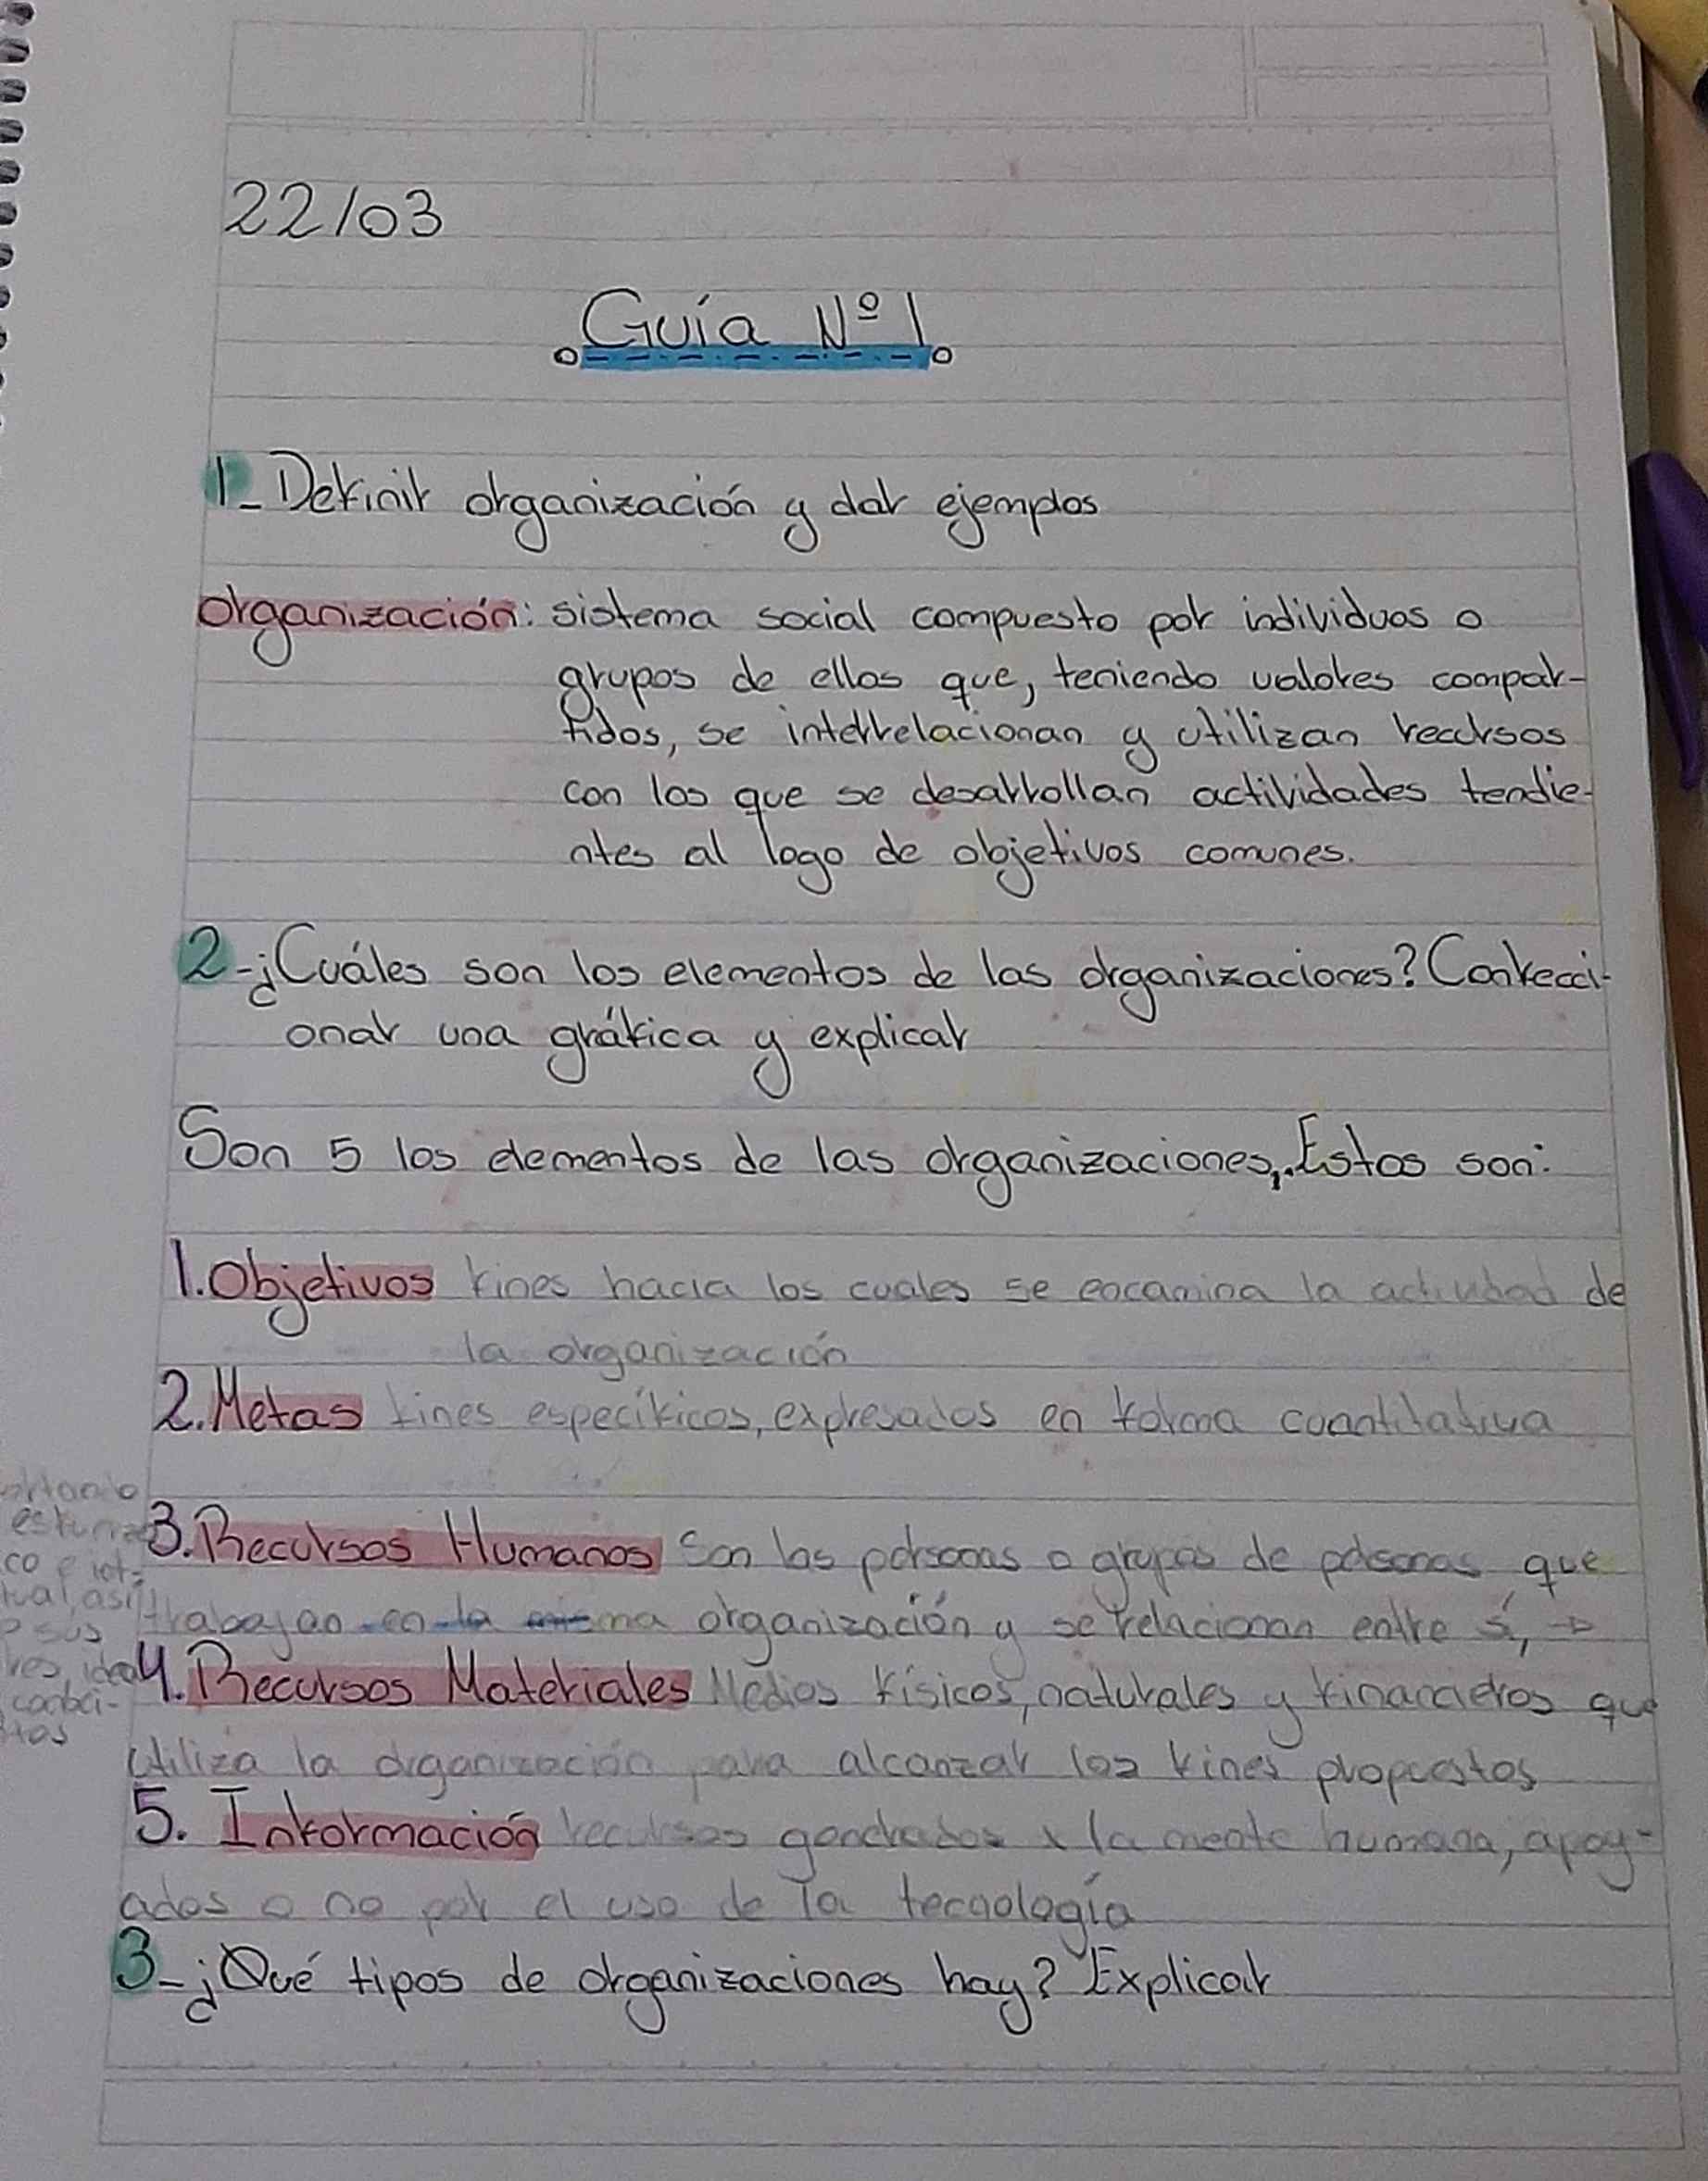 22/03
Guía Nº 1
1_ Definir organización y dar ejemplos
organización: sistema social compuesto por individuos o
grupos de ellos que, teniendo valores compar-
tidos, se interrelacionan y utilizan recursos
con los que se desarrollan actividades tendie-
ntes al logo de objetivos comunes.
2-¿Cuáles son los elementos de las organizaciones? Confecci-
onar una gráfica y explicar
Son 5 los elementos de las organizaciones,. Estos son:
1. Objetivos fines hacia los cuales se encamina la actividad de
la organización
2. Metas fines específicos, expresados en forma cuantitativa
3. Recursos Humanos Son las personas o grupos de personas que
trabajan en la misma organización y se relacionan entre sí, →
4. Recursos Materiales Medios físicos, naturales y financieros que
utiliza la organización para alcanzar los fines propuestos
5. Información recursos generados x la mente humana, apoy-
ados o no por el uso de la tecnología
3-¿Qué tipos de organizaciones hay? Explicar